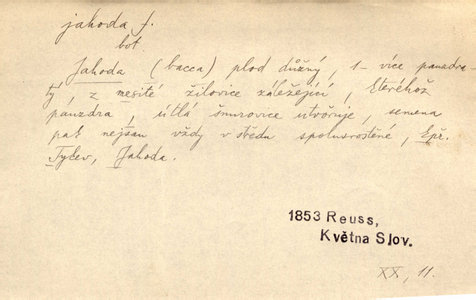 jahoda f.
bot.
Jahoda (bacca) plod důžný, 1 – více pauzdra-
tý, z mesité žilovice záležející, kteréhož
pauzdra, útlá šnurovice utvořuje, semena
pak nejsau vždy v středu spolusrostěné, kpř.
Tyčev, Jahoda.
1853 Reuss,
Května Slov.
XX, 11.